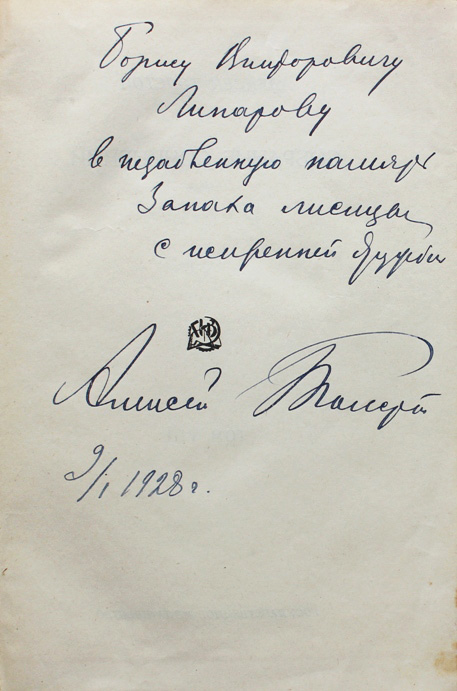 Борису Викторовичу
Липарову
в незабвенную память
Запаха лисицы
с искренней дружбы
Алексей Толстой
9/I 1928 г.